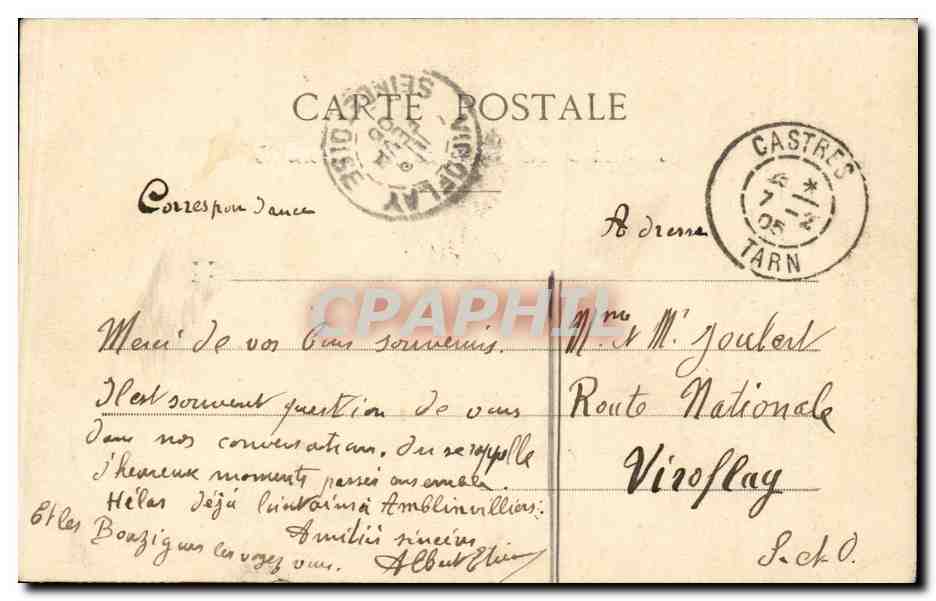 CARTE POSTALE
VIROFLAY SEINE OISE
CASTRES
7 - 2
05
TARN
Correspondance
Adresse
CPAPHIL
Merci de vos bons souvenirs.
Il est souvent question de vous
dans nos conversations. On se rappelle
d'heureux moments passés ensemble.
Hélas déjà lointains à Amblinvilliers.
Amitiés sincères
Et les Bouzigues les voyez vous. Albert
Mme et Mr Joubert
Route Nationale
Viroflay
S. et O.